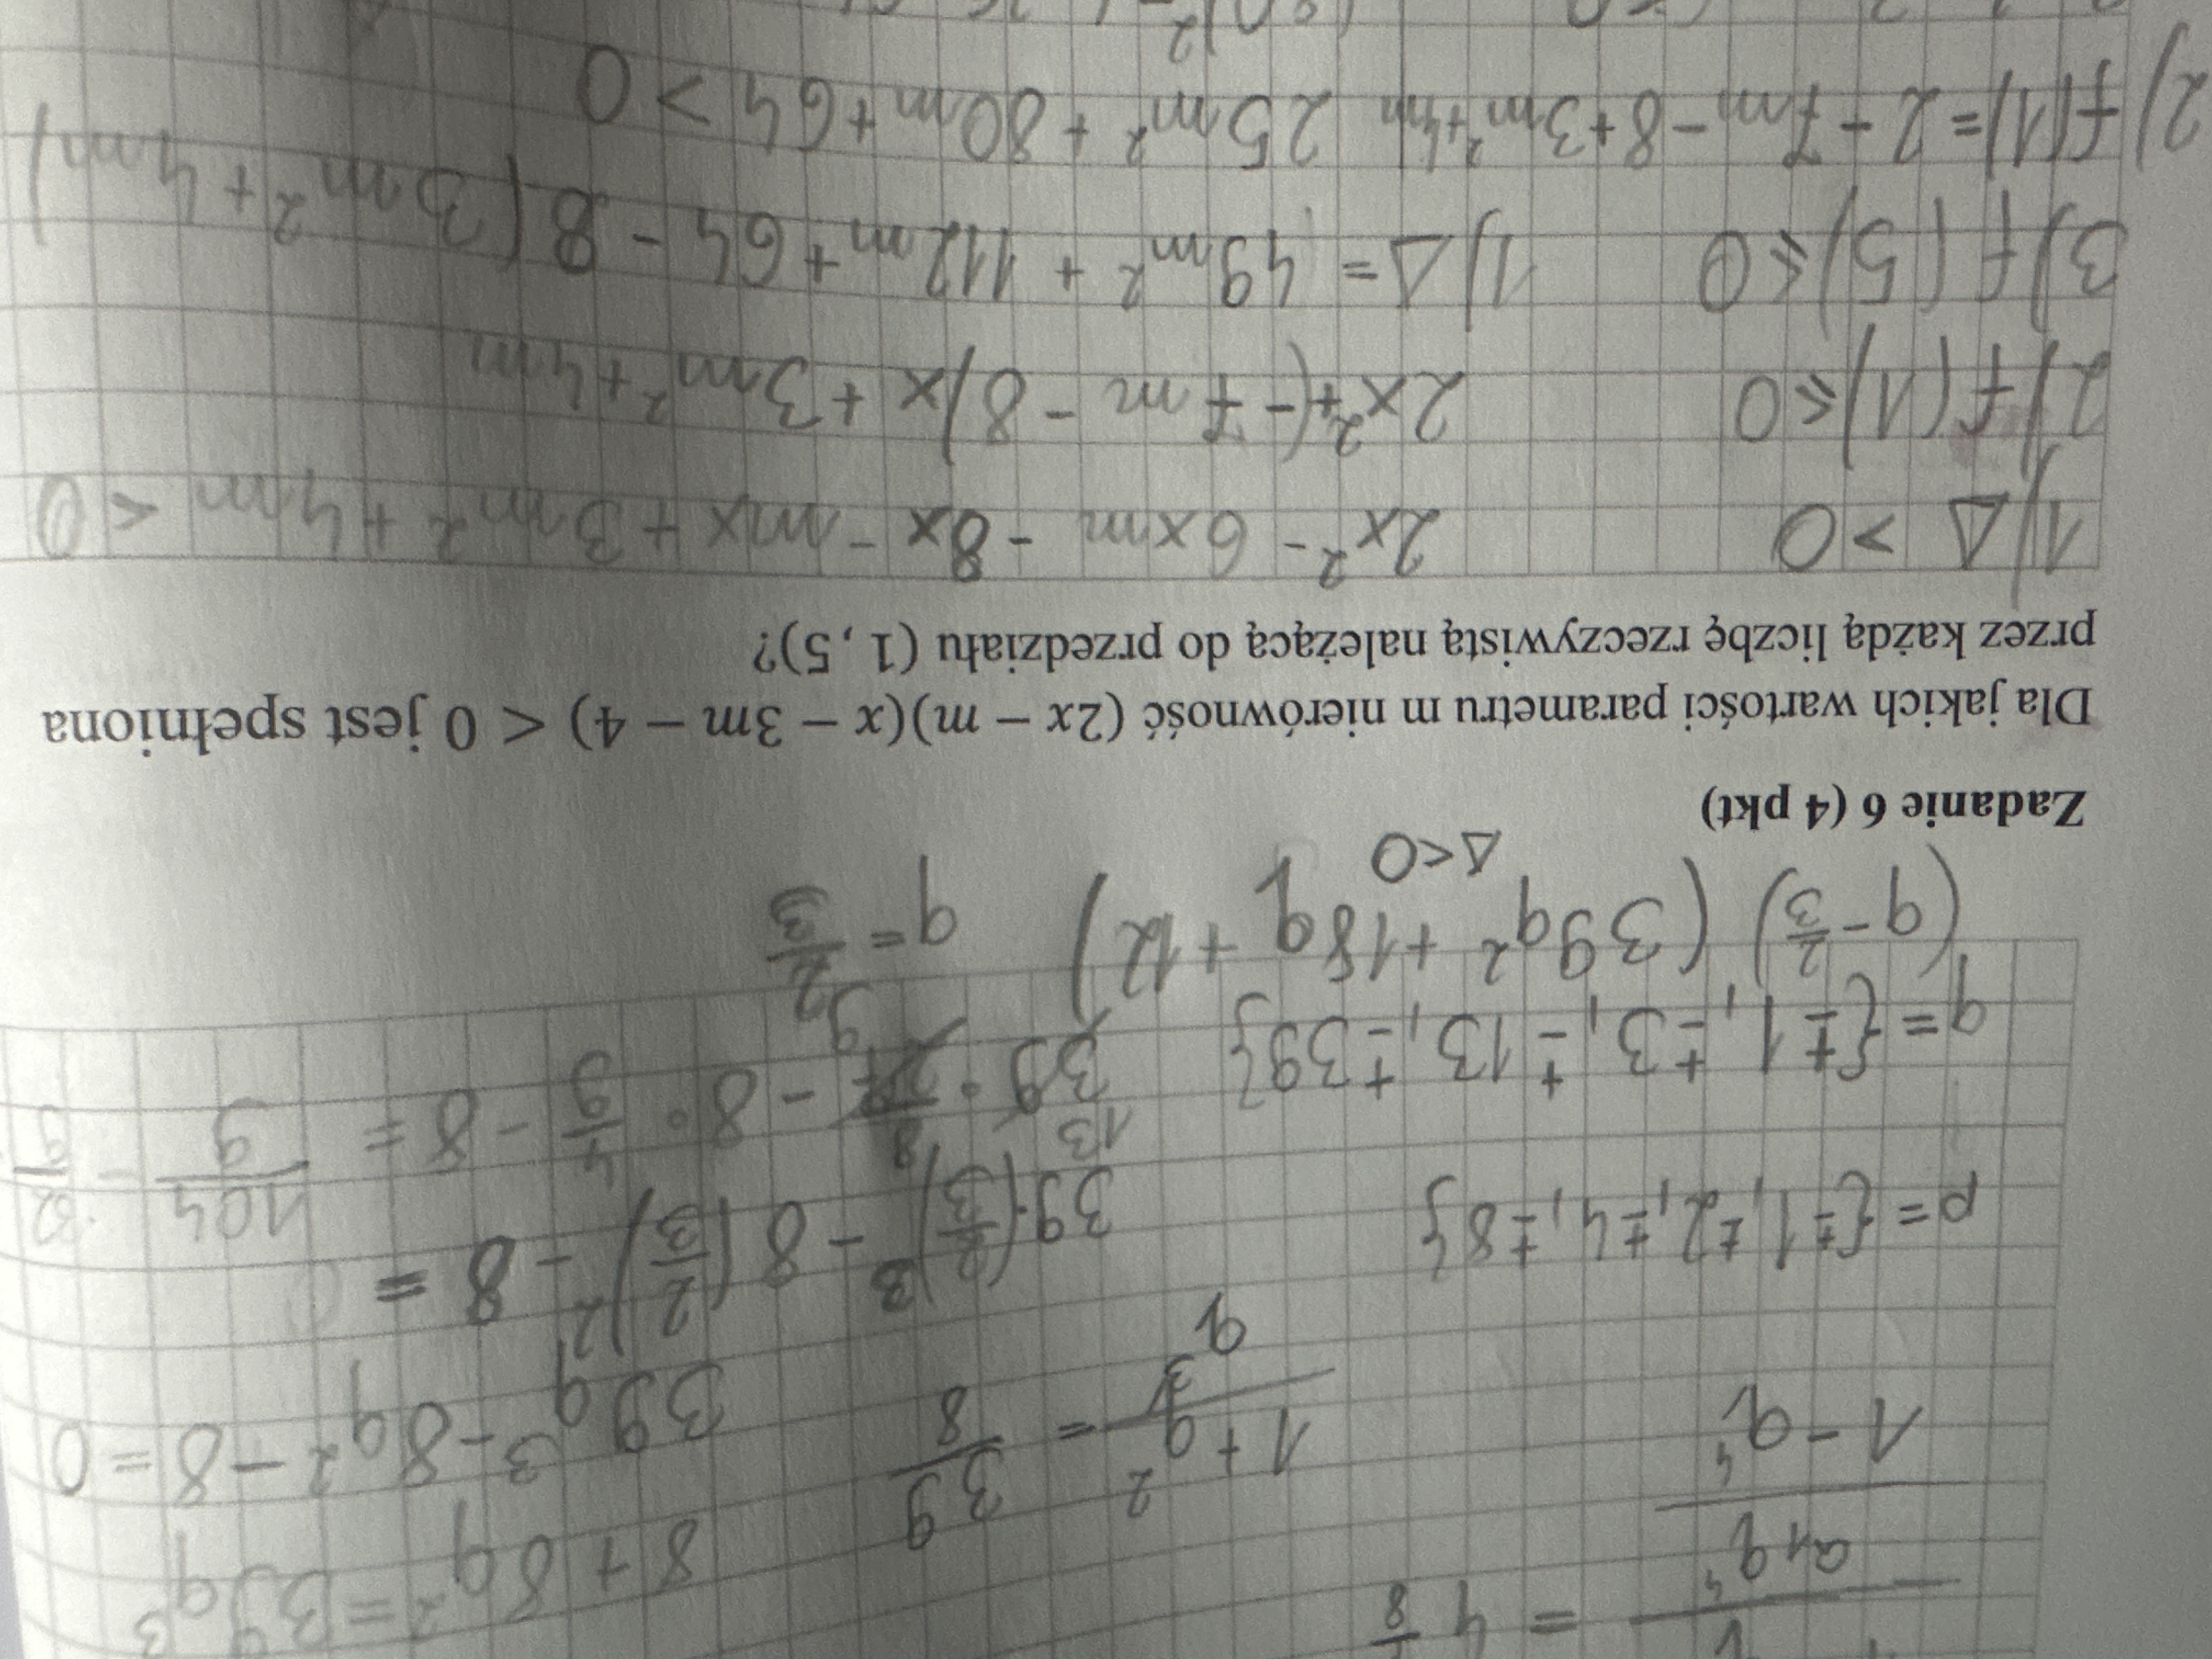 = 4 1/8
a₁q⁴
1 - q⁴
8 + 8q² = 39q³
1 + q² / q³ = 39/8
39q³ - 8q² - 8 = 0
p = {±1, ±2, ±4, ±8}
39·(2/3)³ - 8(2/3)² - 8 =
q = {±1, ±3, ±13, ±39}
13 39 · 8/27 9 - 8 · 4/9 - 8 = 104/9 - 32/9
(q - 2/3) (39q² + 18q + 12) q = 2/3
Δ<0
Zadanie 6 (4 pkt)
Dla jakich wartości parametru m nierówność (2x – m)(x – 3m – 4) < 0 jest spełniona
przez każdą liczbę rzeczywistą należącą do przedziału (1, 5)?
1) Δ > 0 2x² - 6xm - 8x - mx + 3m² + 4m < 0
2) f(1) ≤ 0 2x² + (-7m - 8)x + 3m² + 4m
3) f(5) ≤ 0 1) Δ = 49m² + 112m + 64 - 8(3m² + 4m)
2) f(1) = 2 - 7m - 8 + 3m² + 4m 25m² + 80m + 64 > 0